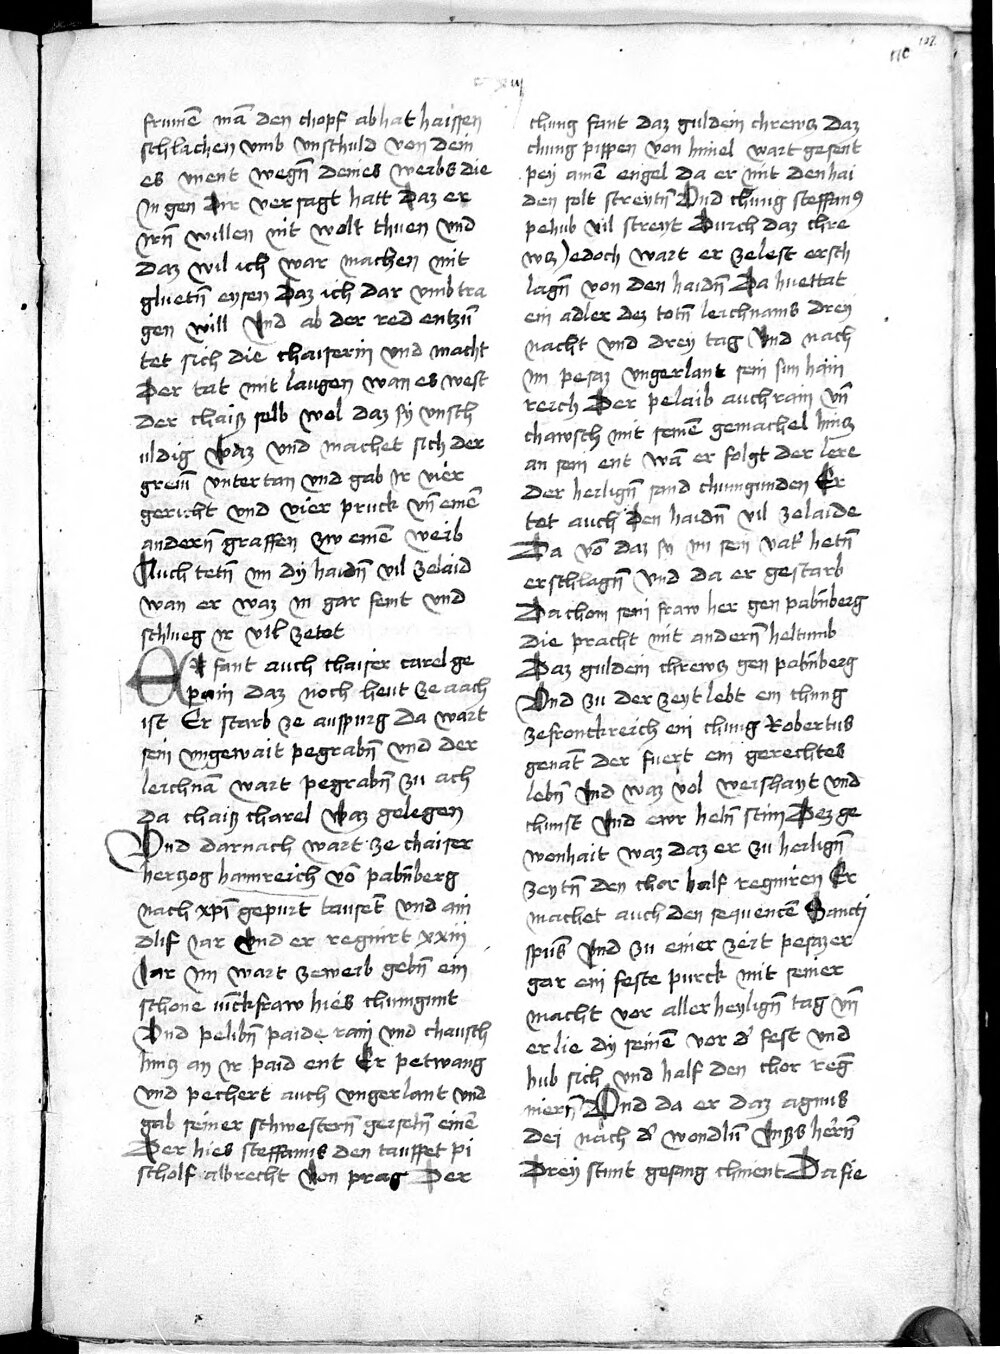 110 107
cxiij
frumē mā den chopf ab hat haissen
schlachen vmb vnschuld von dem
es vment wegn̄ deines weibs die
in gen dir versagt hatt daz er
irn̄ willen nit wolt thuen vnd
daz wil ich war machen mit
gluetn̄ eysen daz ich dar vmb tra
gen will Vnd ab der red entzū
tet sich die chaiserin vnd macht
der tat mit laugen wan es west
der chaiß selb wol daz sy vnsch
uldig waz vnd machet sich der
greiū vntertan vnd gab ir vier
gericht vnd vier pruck vn̄ einē
andern̄ graffen zw einē weib
Auch tetn̄ im dy haidn̄ vil zelaid
wan er waz in gar feint vnd
schlueg ir vil zetot
Er fant auch chaiser carel ge
pain daz noch heut ze aach
ist Er starb ze auspurg da wart
sein vngewait pegrabn̄ vnd der
leichnā wart pegrabn̄ zu ach
da chaiß charel waz gelegen
Vnd darnach wart ze chaiser
hertzog hainreich vō pabn̄berg
nach xpī gepurt tausēt vnd ain
dlif iar Vnd er regnirt xxiij
Jar im wart zeweib gebn̄ ein
schone iūckfraw hies chungunt
Vnd pelibn̄ paide rain vnd chausch
hintz an ir paid ent Er petwang
vnd pechert auch vngerlant vnd
gab seiner schwestern̄ geiseln̄ einē
Der hies steffanus den tauffet pi
scholf albrecht von prag Der
chung fant daz guldein chrewtz daz
chung pippen von himel wart gesent
pey ainē engel da er mit den hai
den solt streytn̄ Vnd chung steffanus
pehub vil streyt Durch daz chre
wtz Jedoch wart er zelest ersch
lagn̄ von den haidn̄ Da huettat
ein adler dez totn̄ leichnams drey
nacht vnd drey tag Vnd nach
im pesaz vngerlant sein sun hain
reich Der pelaib auch rain vn̄
chawsch mit seinē gemachel hintz
an sein ent wā er folgt der lere
Der heilign̄ sand chungunden Er
tet auch den haidn̄ vil zelaide
Da vō daz sy im sein vat' hetn̄
erschlagn̄ Vnd da er gestarb
Da chom sein fraw her gen pabn̄berg
die pracht mit andern̄ heltumb
Daz guldein chrewtz gen pabn̄berg
Vnd zu der zeyt lebt ein chung
zefronckreich ein chung Robertus
genāt der fuert ein gerechtes
lebn̄ Vnd waz vol weishayt vnd
chunst Vnd ewr heln̄ stim Dez ge
wonhait waz daz er zu heilign̄
zeytn̄ den chor half regniren Er
machet auch den sequencē Sancti
spūs Vnd zu einer zeit pesazer
gar ein feste purck mit seiner
macht vor aller heylign̄ tag vn̄
erlie dy seinē vor d' fest vnd
hub sich vnd half den chor reg
niern̄ Vnd da er daz agnus
dei nach d' wondlū vnsers hern̄
Drey stunt gesang chment Da fie